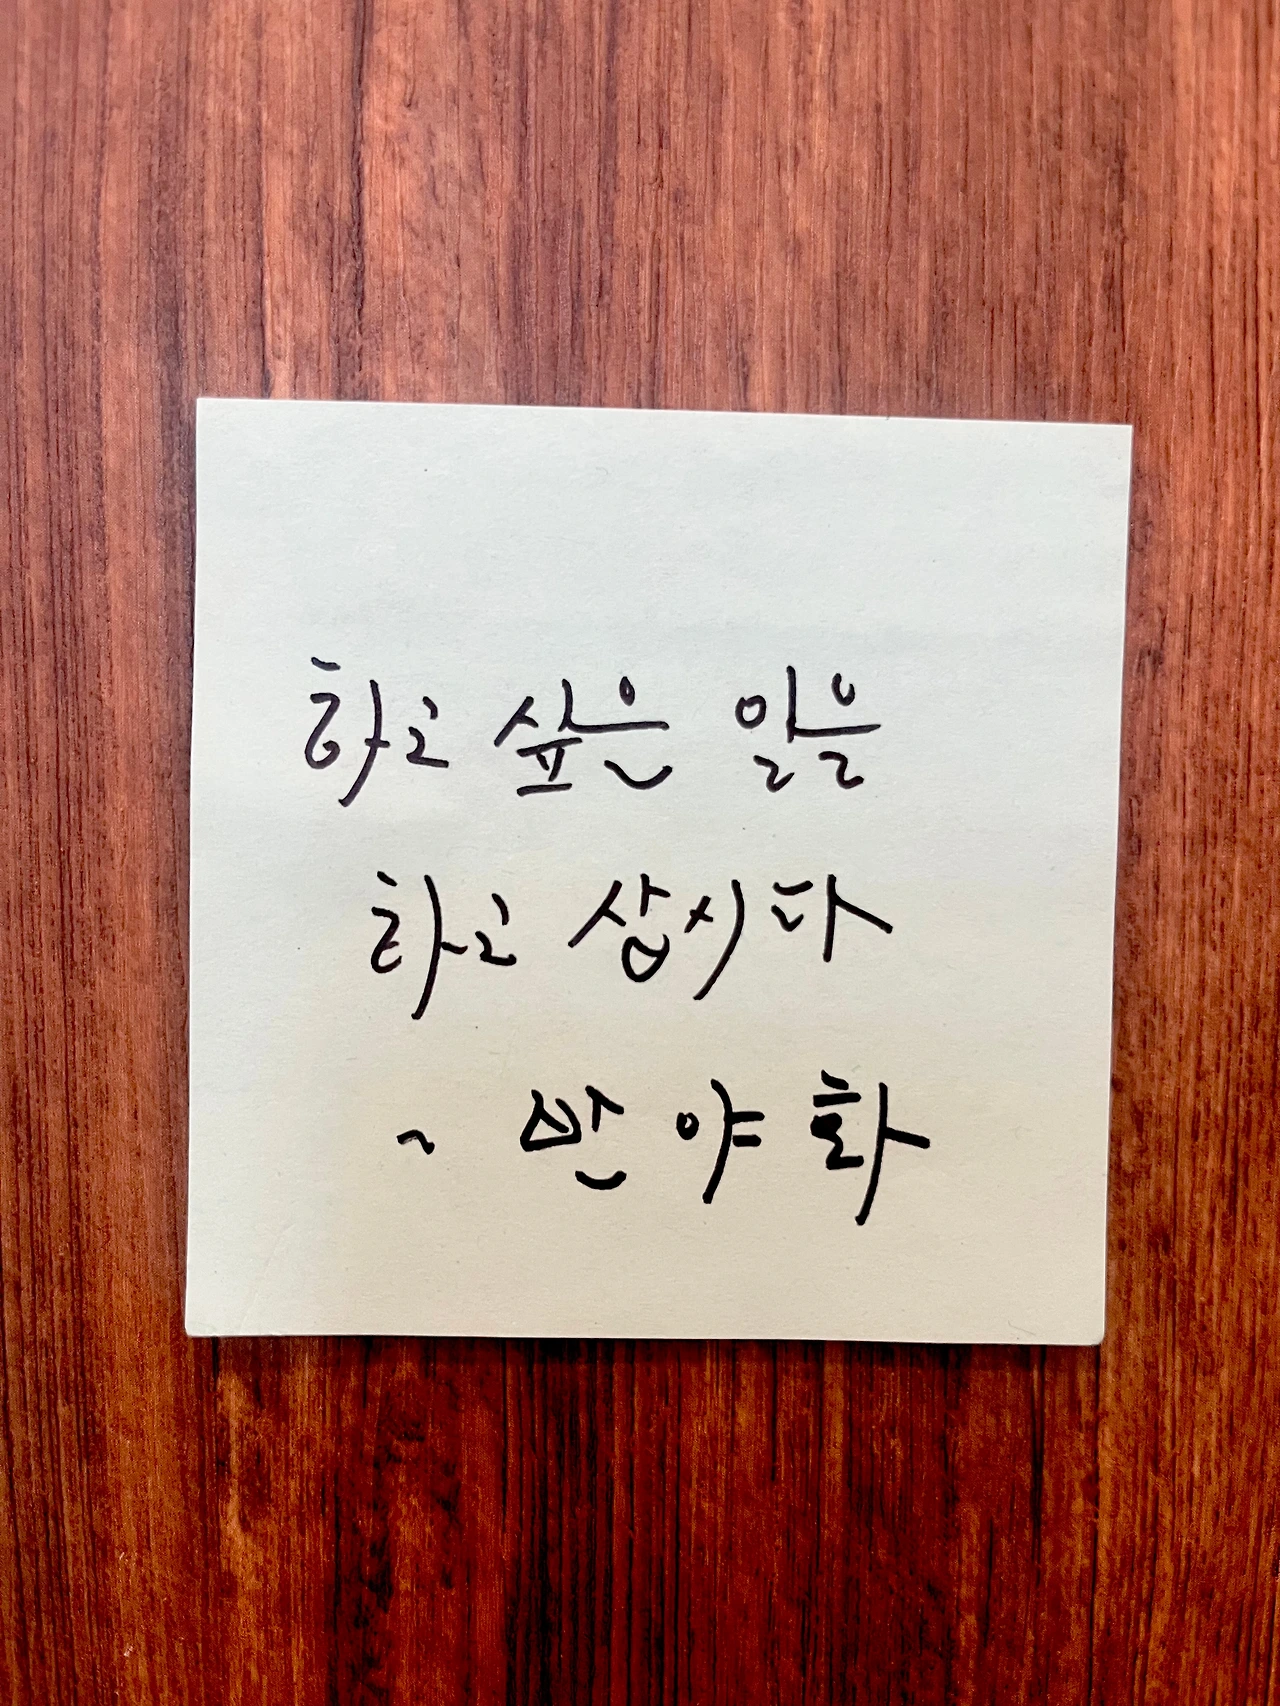 하고 싶은 일을
하고 삽시다
~ 만 야 화